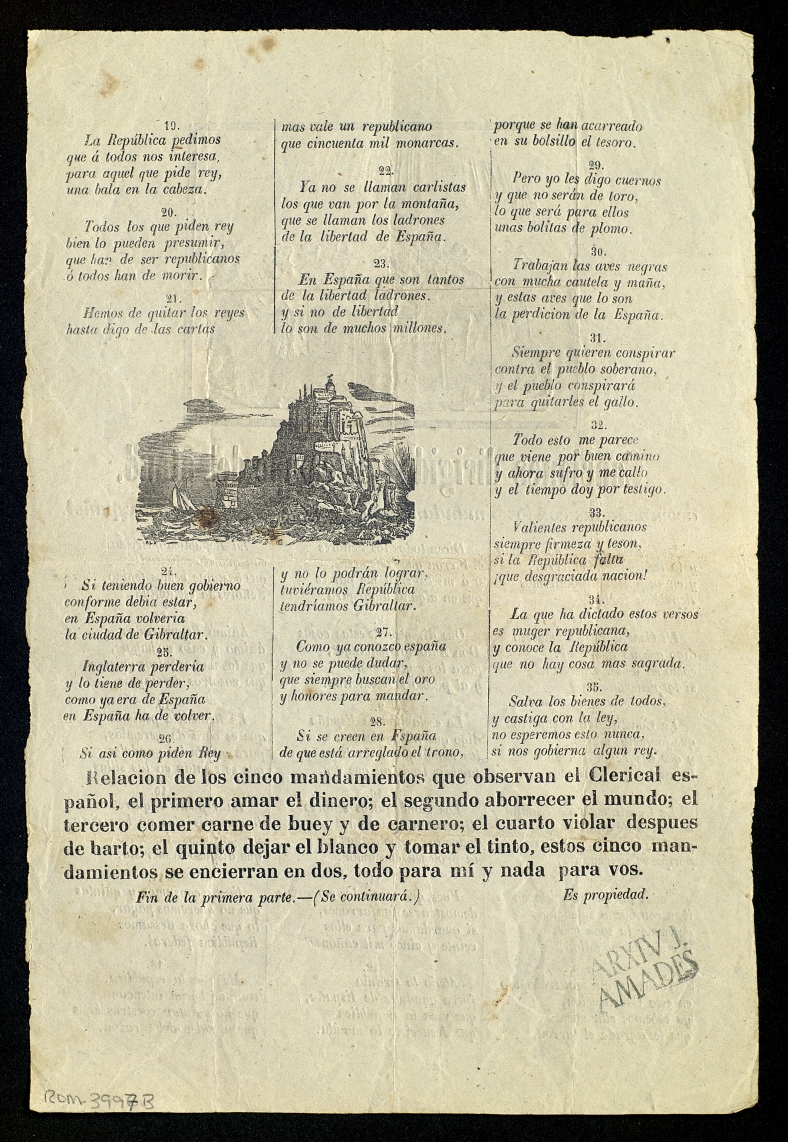 19.
La República pedimos
que á todos nos interesa,
para aquel que pide rey,
una bala en la cabeza.
20.
Todos los que piden rey
bien lo pueden presumir,
que han de ser republicanos
ó todos han de morir.
21.
Hemos de quitar los reyes
hasta digo de las cartas
mas vale un republicano
que cincuenta mil monarcas.
22.
Ya no se llaman carlistas
los que van por la montaña,
que se llaman los ladrones
de la libertad de España.
23.
En España que son tantos
de la libertad ladrones.
y si no de libertad
lo son de muchos millones.
24.
Si teniendo buen gobierno
conforme debia estar,
en España volveria
la ciudad de Gibraltar.
25.
Inglaterra perderia
y lo tiene de perder,
como ya era de España
en España ha de volver.
26.
Si asi como piden Rey
y no lo podrán lograr,
tuviéramos República
tendríamos Gibraltar.
27.
Como ya conozco españa
y no se puede dudar,
que siempre buscan el oro
y honores para mandar.
28.
Si se creen en España
de que está arreglado el trono,
porque se han acarreado
en su bolsillo el tesoro.
29.
Pero yo les digo cuernos
y que no serán de toro,
lo que será para ellos
unas bolitas de plomo.
30.
Trabajan las aves negras
con mucha cautela y maña,
y estas aves que lo son
la perdicion de la España.
31.
Siempre quieren conspirar
contra el pueblo soberano,
y el pueblo conspirará
para quitarles el gallo.
32.
Todo esto me parece
que viene por buen camino
y ahora sufro y me callo
y el tiempo doy por testigo.
33.
Valientes republicanos
siempre firmeza y teson,
si la República falta
¡que desgraciada nacion!
34.
La que ha dictado estos versos
es muger republicana,
y conoce la República
que no hay cosa mas sagrada.
35.
Salva los bienes de todos,
y castiga con la ley,
no esperemos esto nunca,
si nos gobierna algun rey.
Relacion de los cinco mandamientos que observan el Clerical es-
pañol, el primero amar el dinero; el segundo aborrecer el mundo; el
tercero comer carne de buey y de carnero; el cuarto violar despues
de harto; el quinto dejar el blanco y tomar el tinto, estos cinco man-
damientos se encierran en dos, todo para mí y nada para vos.
Fin de la primera parte.—(Se continuará.) Es propiedad.
ARXIV J.
AMADES
ROM-3997B